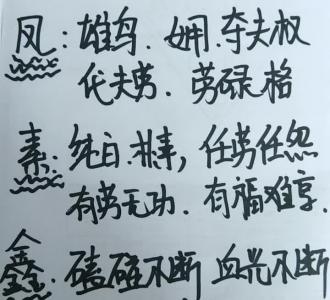 凤:雄鸟.女用.夺夫权
代夫劳.劳碌格
素:纯白.任劳任怨
有劳无功.有福难享.
鑫:磕碰不断 血光不断